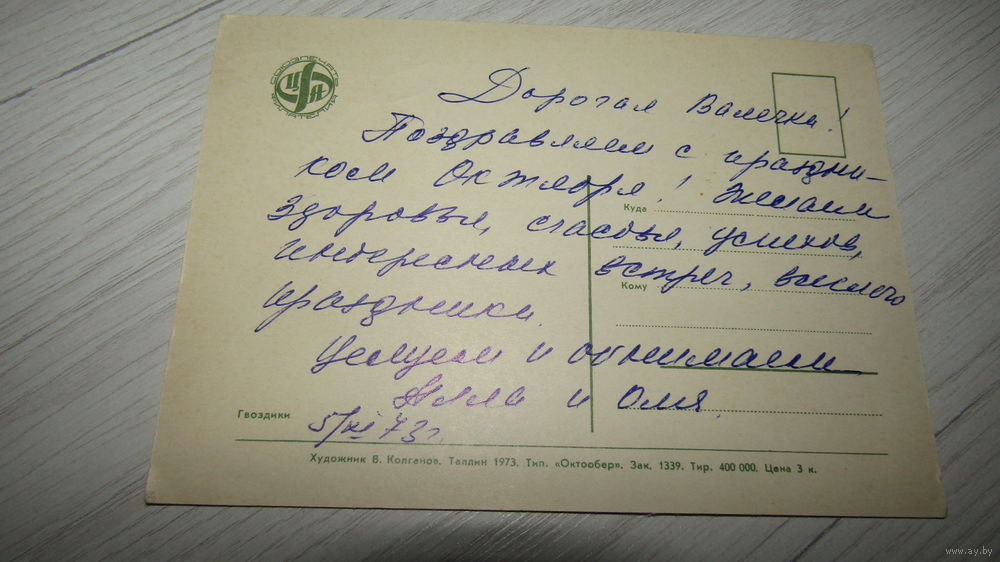 СОЮЗПЕЧАТЬ
ЦФА
ФИЛАТЕЛИЯ
Дорогая Валечка!
Поздравляем с праздни-
ком Октября! Желаем
здоровья, счастья, успехов,
интересных встреч, веселого
праздника.
Целуем и обнимаем
Алла и Оля.
5/XI 73 г.
Куда
Кому
Гвоздики
Художник В. Колганов. Таллин 1973. Тип. «Октообер». Зак. 1339. Тир. 400 000. Цена 3 к.
www.ay.by